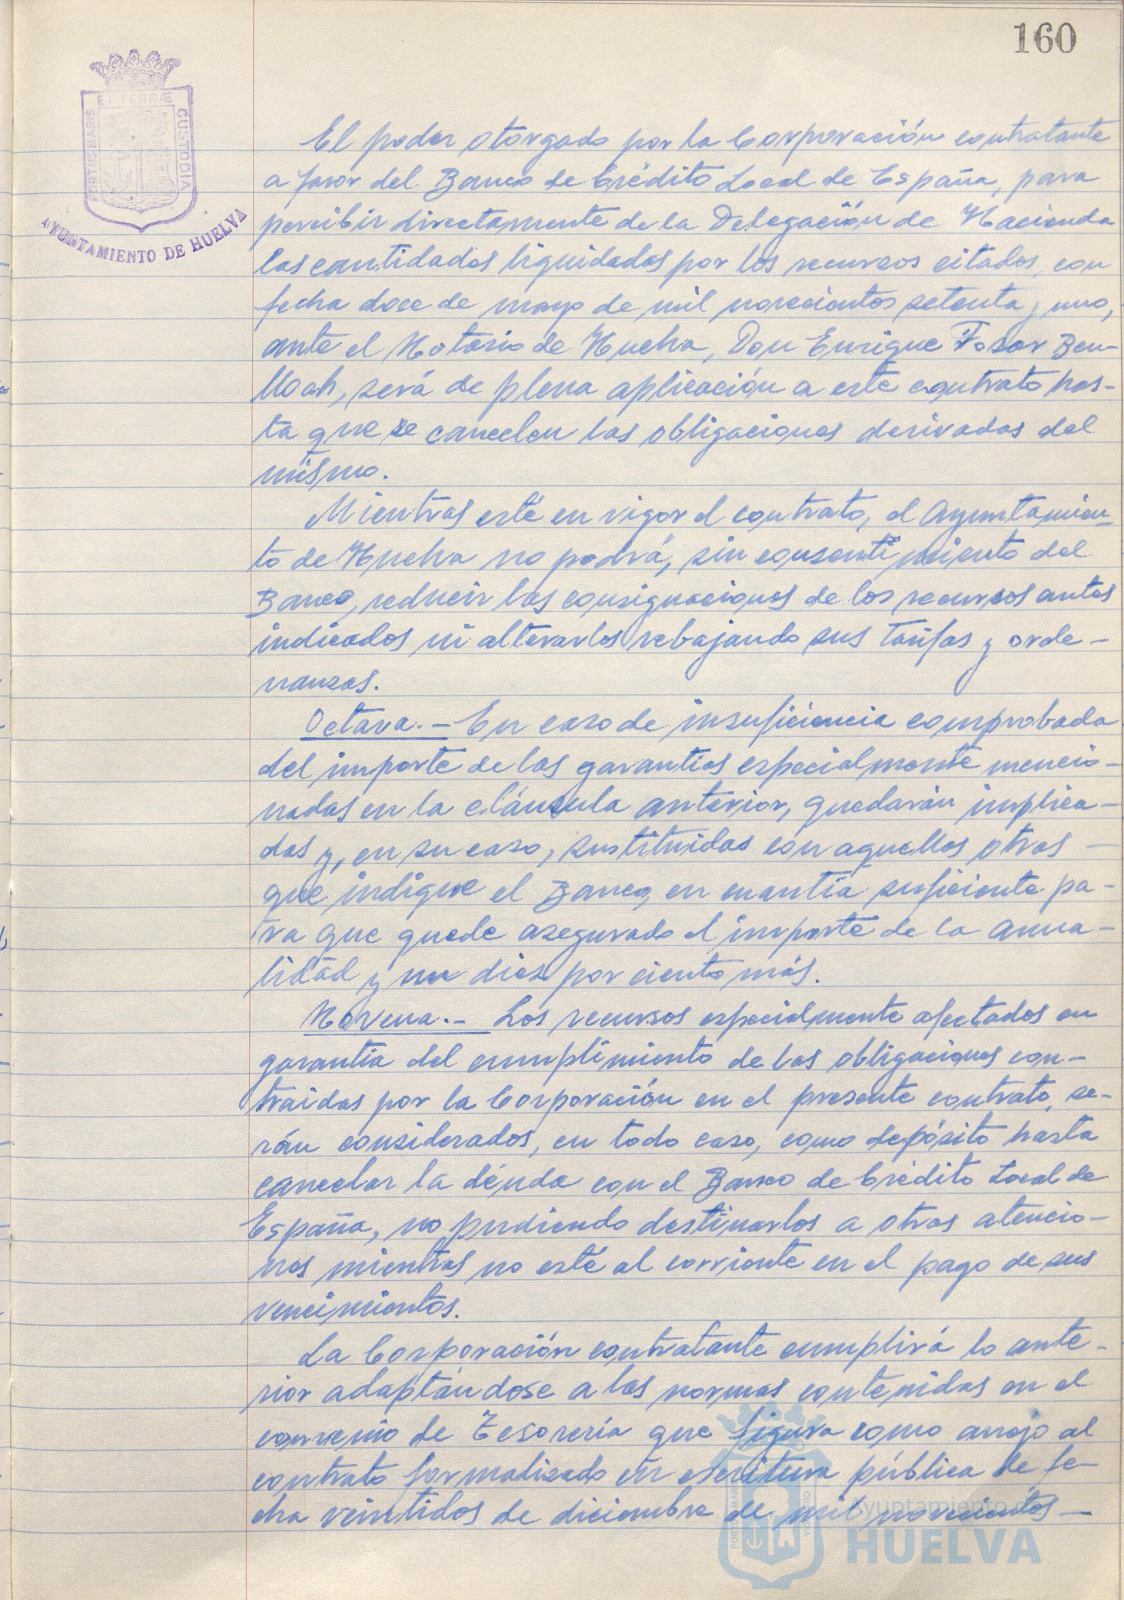 160
PORTUS MARIS
ET TERRÆ
CUSTODIA
AYUNTAMIENTO DE HUELVA
El poder otorgado por la Corporación contratante
a favor del Banco de Crédito Local de España, para
percibir directamente de la Delegación de Hacienda
las cantidades liquidadas por los recursos citados, con
fecha doce de mayo de mil novecientos setenta y uno,
ante el Notario de Huelva, Don Enrique Fosar Ben-
lloch, será de plena aplicación a este contrato has-
ta que se cancelen las obligaciones derivadas del
mismo.
Mientras esté en vigor el contrato, el Ayuntamien-
to de Huelva no podrá, sin consentimiento del
Banco, reducir las consignaciones de los recursos antes
indicados ni alterarlos rebajando sus tarifas y orde-
nanzas.
Octava.- En caso de insuficiencia comprobada
del importe de las garantías especialmente mencio-
nadas en la cláusula anterior, quedarán implica-
das y, en su caso, sustituidas con aquellas otras -
que indique el Banco, en cuantía suficiente pa-
ra que quede asegurado el importe de la anua-
lidad y un diez por ciento más.
Novena.- Los recursos especialmente afectados en
garantía del cumplimiento de las obligaciones con-
traídas por la Corporación en el presente contrato, se-
rán considerados, en todo caso, como depósito hasta
cancelar la deuda con el Banco de Crédito Local de
España, no pudiendo destinarlos a otras atencio-
nes mientras no esté al corriente en el pago de sus
vencimientos.
La Corporación contratante cumplirá lo ante-
rior adaptándose a las normas contenidas en el
convenio de Tesorería que figura como anejo al
contrato formalizado en escritura pública de fe-
cha veintidos de diciembre de mil novecientos -
Ayuntamiento de
HUELVA